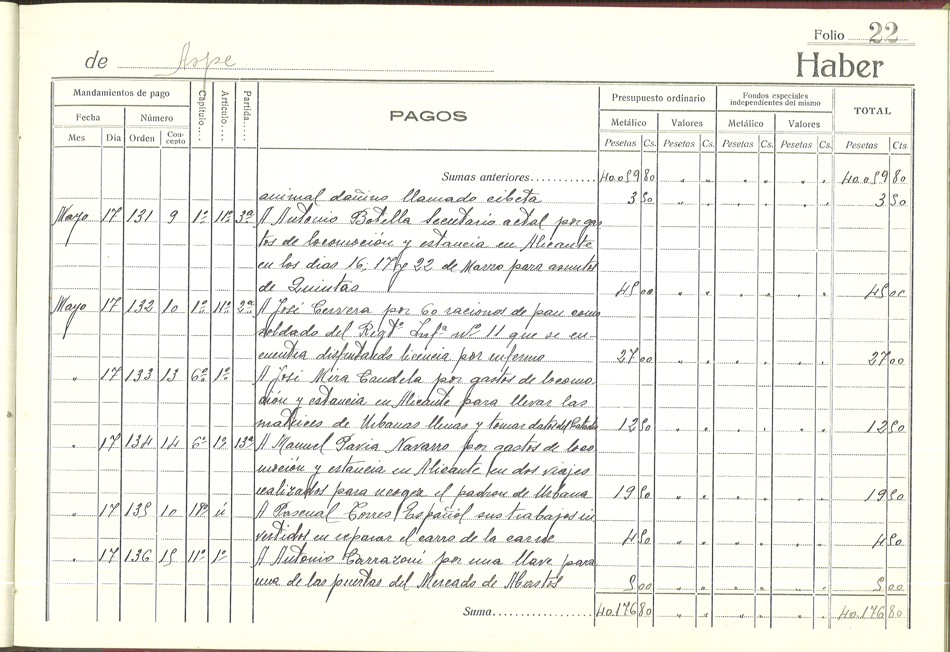 Folio 22
de Aspe Haber
Mandamientos de pago Capítulo.... Artículo.... Partida.... PAGOS Presupuesto ordinario Fondos especiales independientes del mismo TOTAL
Fecha Número Metálico Valores Metálico Valores
Mes Día Orden Concepto Pesetas Cs. Pesetas Cs. Pesetas Cs. Pesetas Cs. Pesetas Cts.
Sumas anteriores............ 40.059 80 " " " " " " 40.059 80
animal dañino llamado cibeta 3 50 " " " " " " 3 50
Mayo 17 131 9 1º 11º 3ª A Antonio Botella Secretario actal por gas
tos de locomoción y estancia en Alicante
en los dias 16, 17 y 22 de Marzo para asuntos
de Quintas 45 00 " " " " " " 45 00
Mayo 17 132 10 1º 11º 2ª A José Cervera por 60 raciones de pan como
soldado del Regtº Infª nº 11 que se en-
cuentra disfrutando licencia por enfermo 27 00 " " " " " " 27 00
" 17 133 13 6º 1º A José Mira Candela por gastos de locomo
ción y estancia en Alicante para llevar las
matrices de Urbanas llenas y tomar datos del Catastro 12 50 " " " " " " 12 50
" 17 134 14 6º 1º 13ª A Manuel Pavia Navarro por gastos de loco
moción y estancia en Alicante en dos viajes
realizados para recoger el padron de Urbana 19 50 " " " " " " 19 50
" 17 135 10 18º A Pascual Torres Español sus trabajos in
vertidos en reparar el carro de la carne 4 50 " " " " " " 4 50
" 17 136 15 11º 1º A Antonio Carrazoni por una llave para
una de las puertas del Mercado de Abastos 5 00 " " " " " " 5 00
Suma.................... 40.176 80 " " " " " " 40.176 80